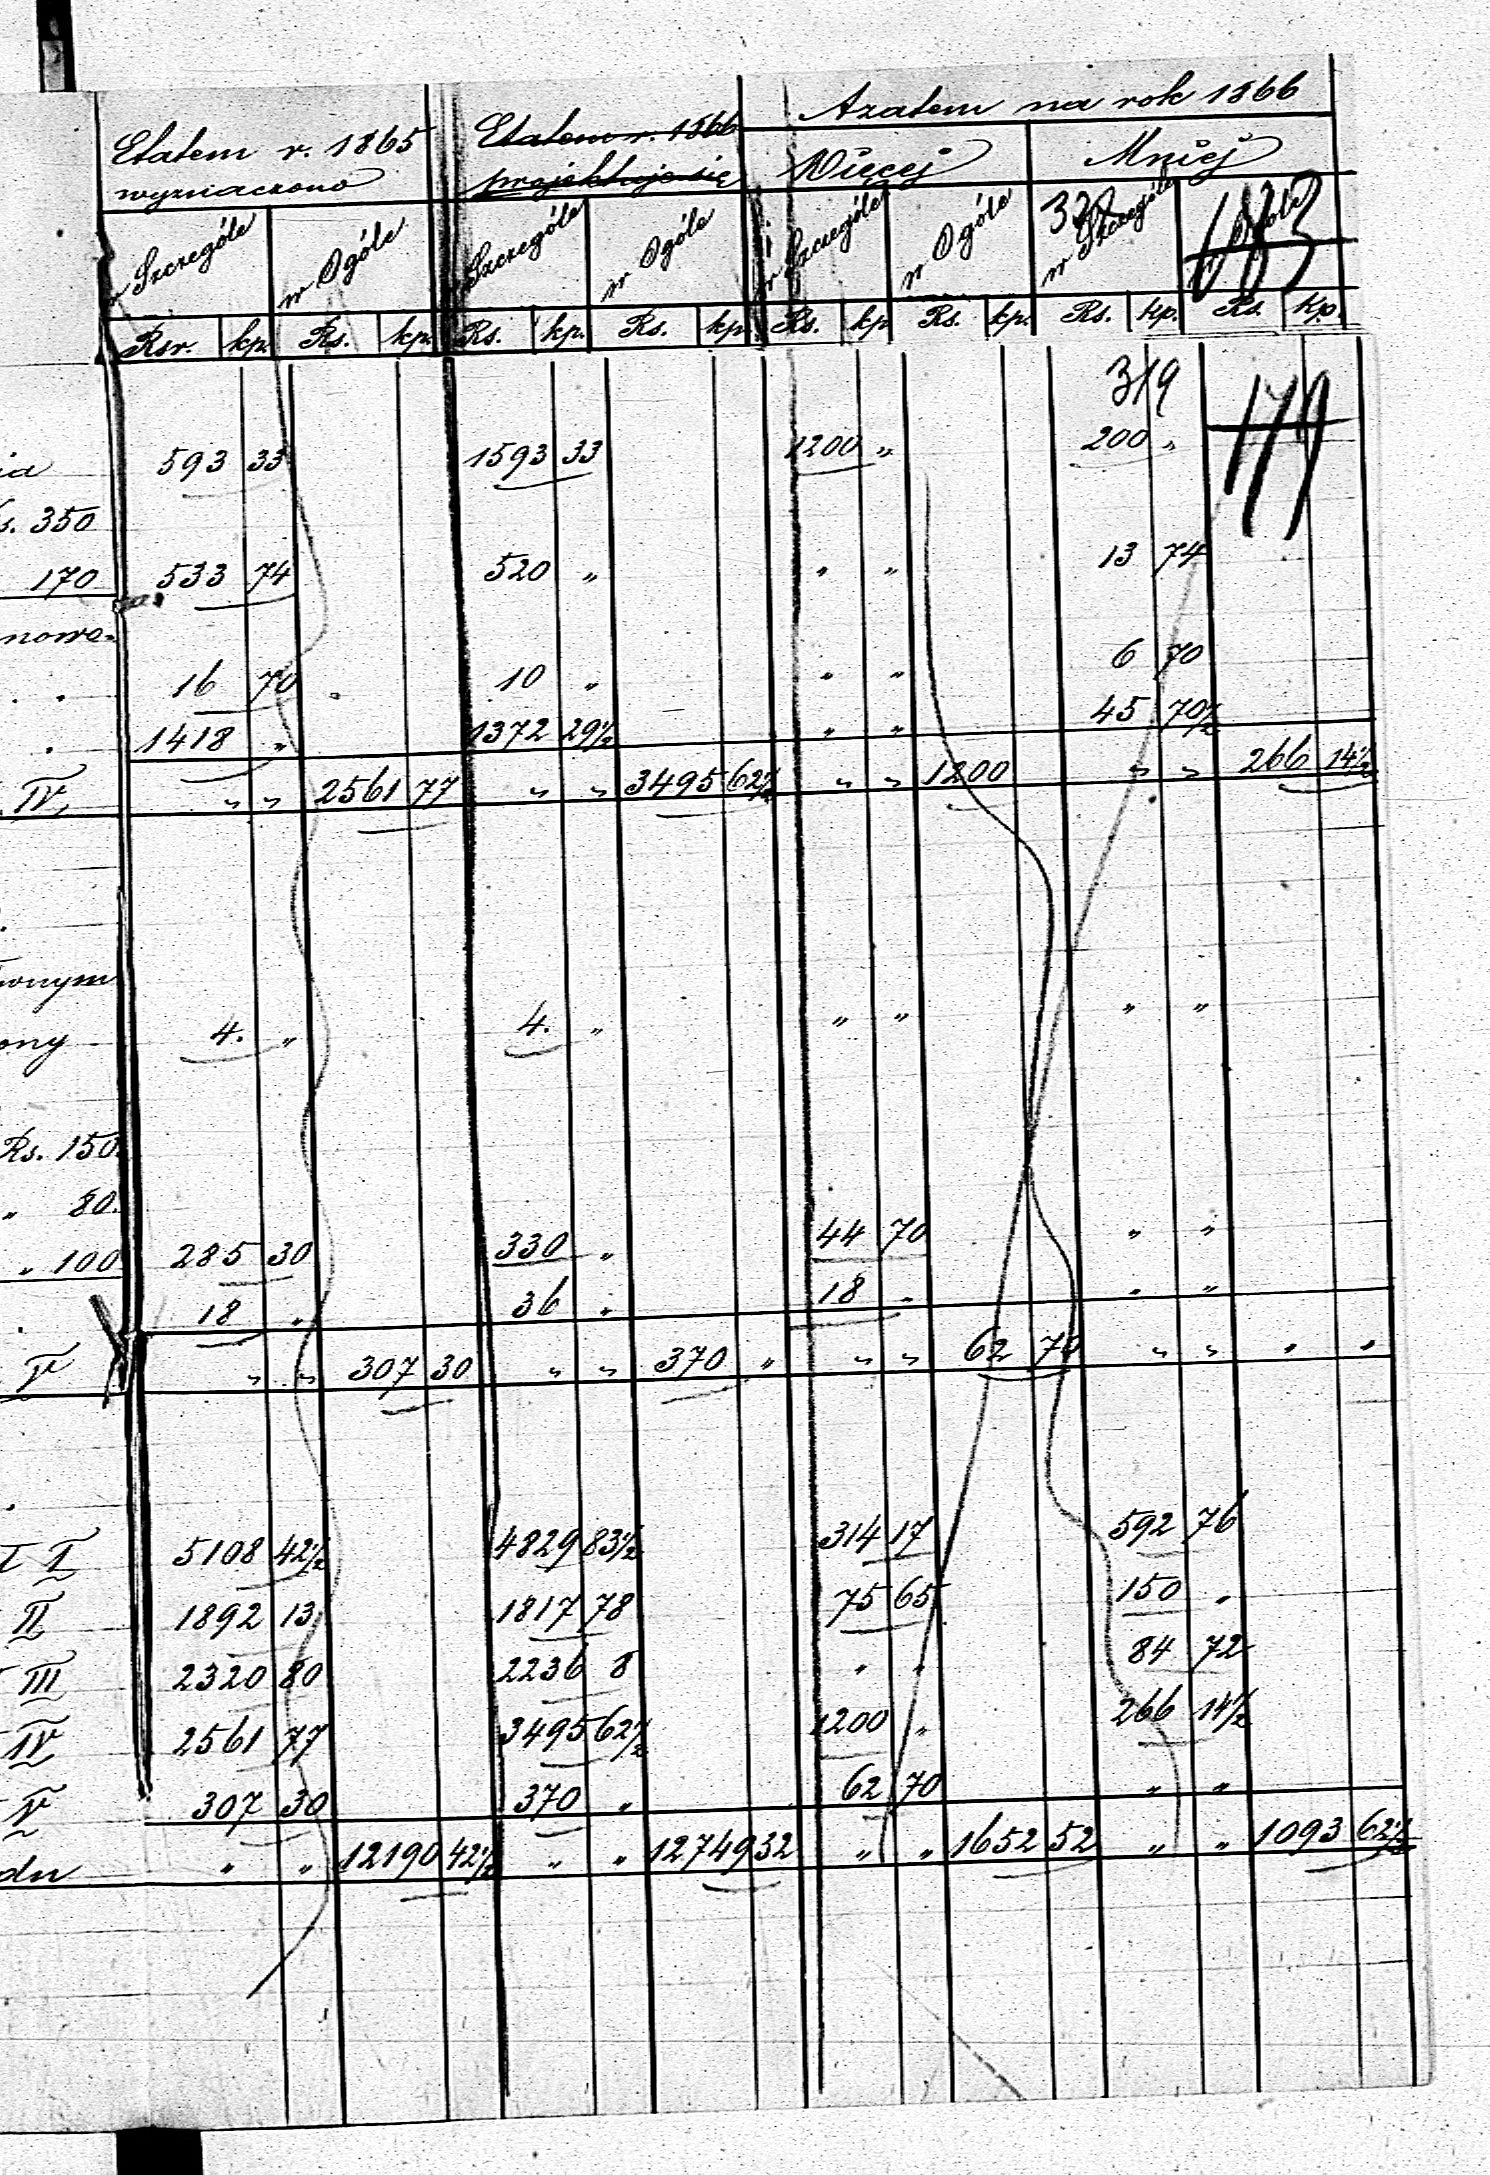 Azatem na rok 1866
Etatem r. 1865 Etatem r. 1866
wyznaczono projektuje się Więcej Mniej
w Szczególe w Ogóle w Szczególe w Ogóle w Szczególe w Ogóle w Szczególe w Ogóle
Rsr. kp. Rs. kp. Rs. kp. Rs. kp. Rs. kp. Rs. kp. Rs. kp. Rs. kp.
319
179
ia 593 33 1593 33 1200 „ 200 „
s. 350
170 533 74 520 „ „ „ 13 74
nowe-
. . 16 70 10 „ „ „ 6 70
. 1418 „ 1372 29½ „ „ 45 70½
IV, „ „ 2561 77 „ „ 3495 62½ „ „ 1200 „ „ 266 14½
onym
ony 4. „ 4. „ „ „ „ „
Rs. 150.
„ 80.
„ 100 285 30 330 „ 44 70 „ „
. 18 „ 36 „ 18 „ „ „
V „ „ 307 30 „ „ 370 „ „ „ 62 70 „ „ „ „
I 5108 42½ 4829 83½ 314 17 592 76
II 1892 13 1817 78 75 65 150 „
III 2320 80 2236 8 „ „ 84 72
IV 2561 77 3495 62½ 1200 „ 266 14½
V 307 30 370 „ 62 70 „ „
du „ „ 12190 42½ „ „ 12749 32 „ „ 1652 52 „ „ 1093 62½